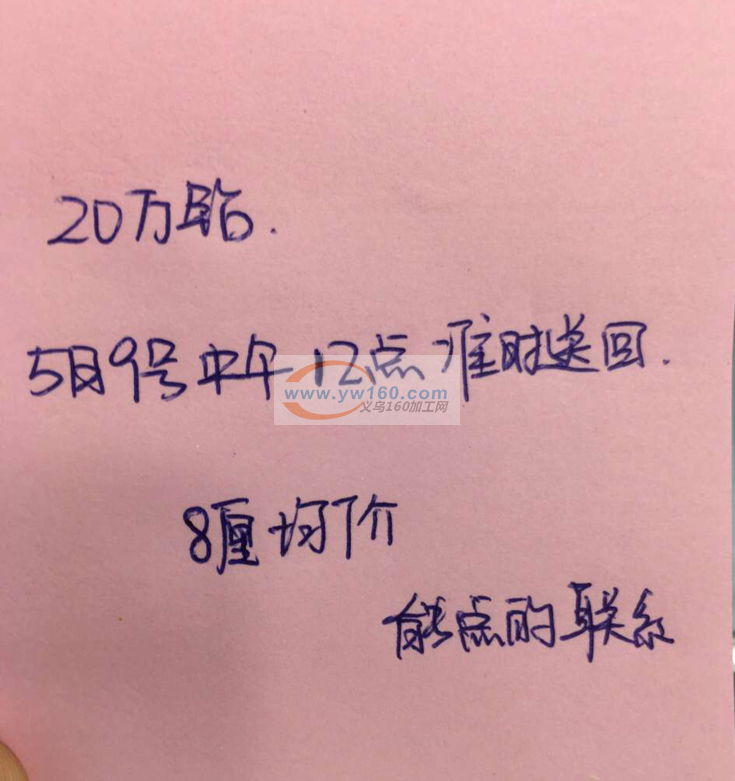 20万
5月9号中午12点准时送回.
www.yw160.com
义乌160加工网
8厘均价
能点的联系